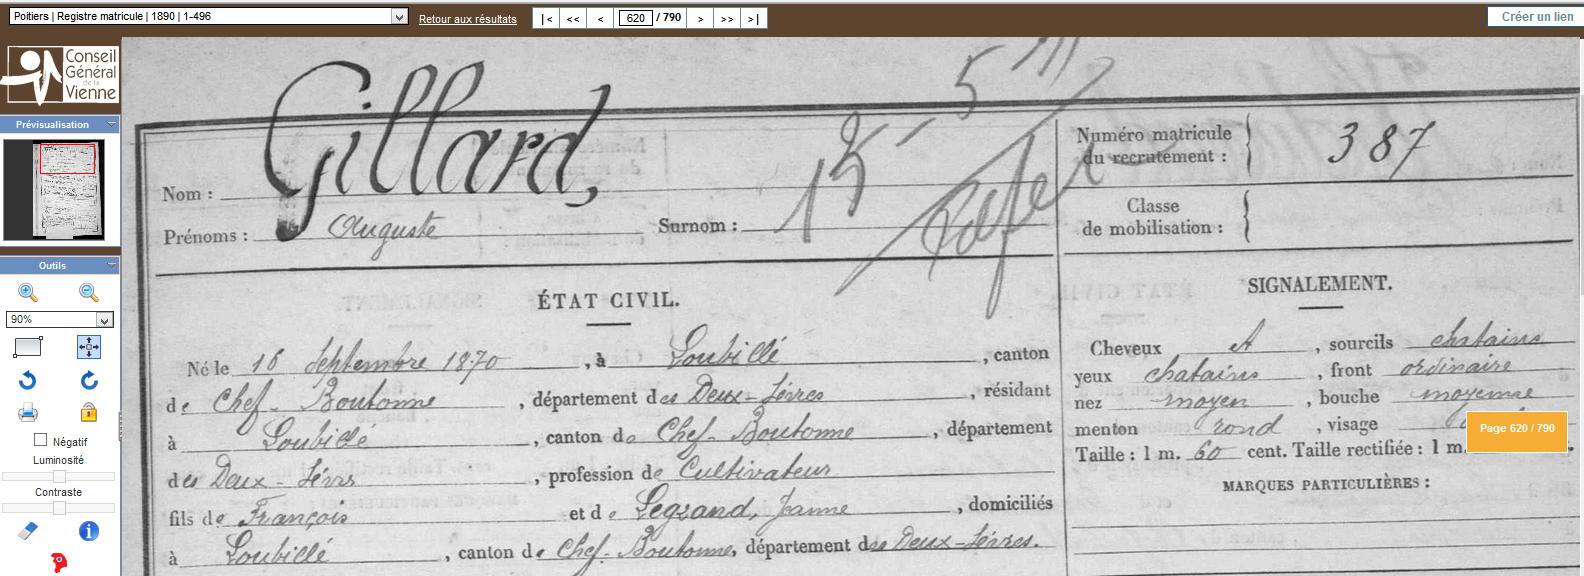 Poitiers | Registre matricule | 1890 | 1-496
Retour aux résultats
|< << < 620 / 790 > >> >|
Créer un lien
Conseil
Général
de la
Vienne
Prévisualisation
Outils
90%
Négatif
Luminosité
Contraste
Nom : Gillard,
Prénoms : Auguste Surnom :
15 - 5
Numéro matricule
du recrutement : 387
Classe
de mobilisation :
ÉTAT CIVIL.
Né le 16 Septembre 1870, à Loubillé, canton
de Chef-Boutonne, département des Deux-Sèvres, résidant
à Loubillé, canton de Chef-Boutonne, département
des Deux-Sèvres, profession de Cultivateur
fils de François et de Legrand, Jeanne, domiciliés
à Loubillé, canton de Chef-Boutonne, département des Deux-Sèvres.
SIGNALEMENT.
Cheveux et, sourcils chatains
yeux chatains, front ordinaire
nez moyen, bouche moyenne
menton rond, visage
Taille : 1 m. 60 cent. Taille rectifiée : 1 m.
Page 620 / 790
MARQUES PARTICULIÈRES :